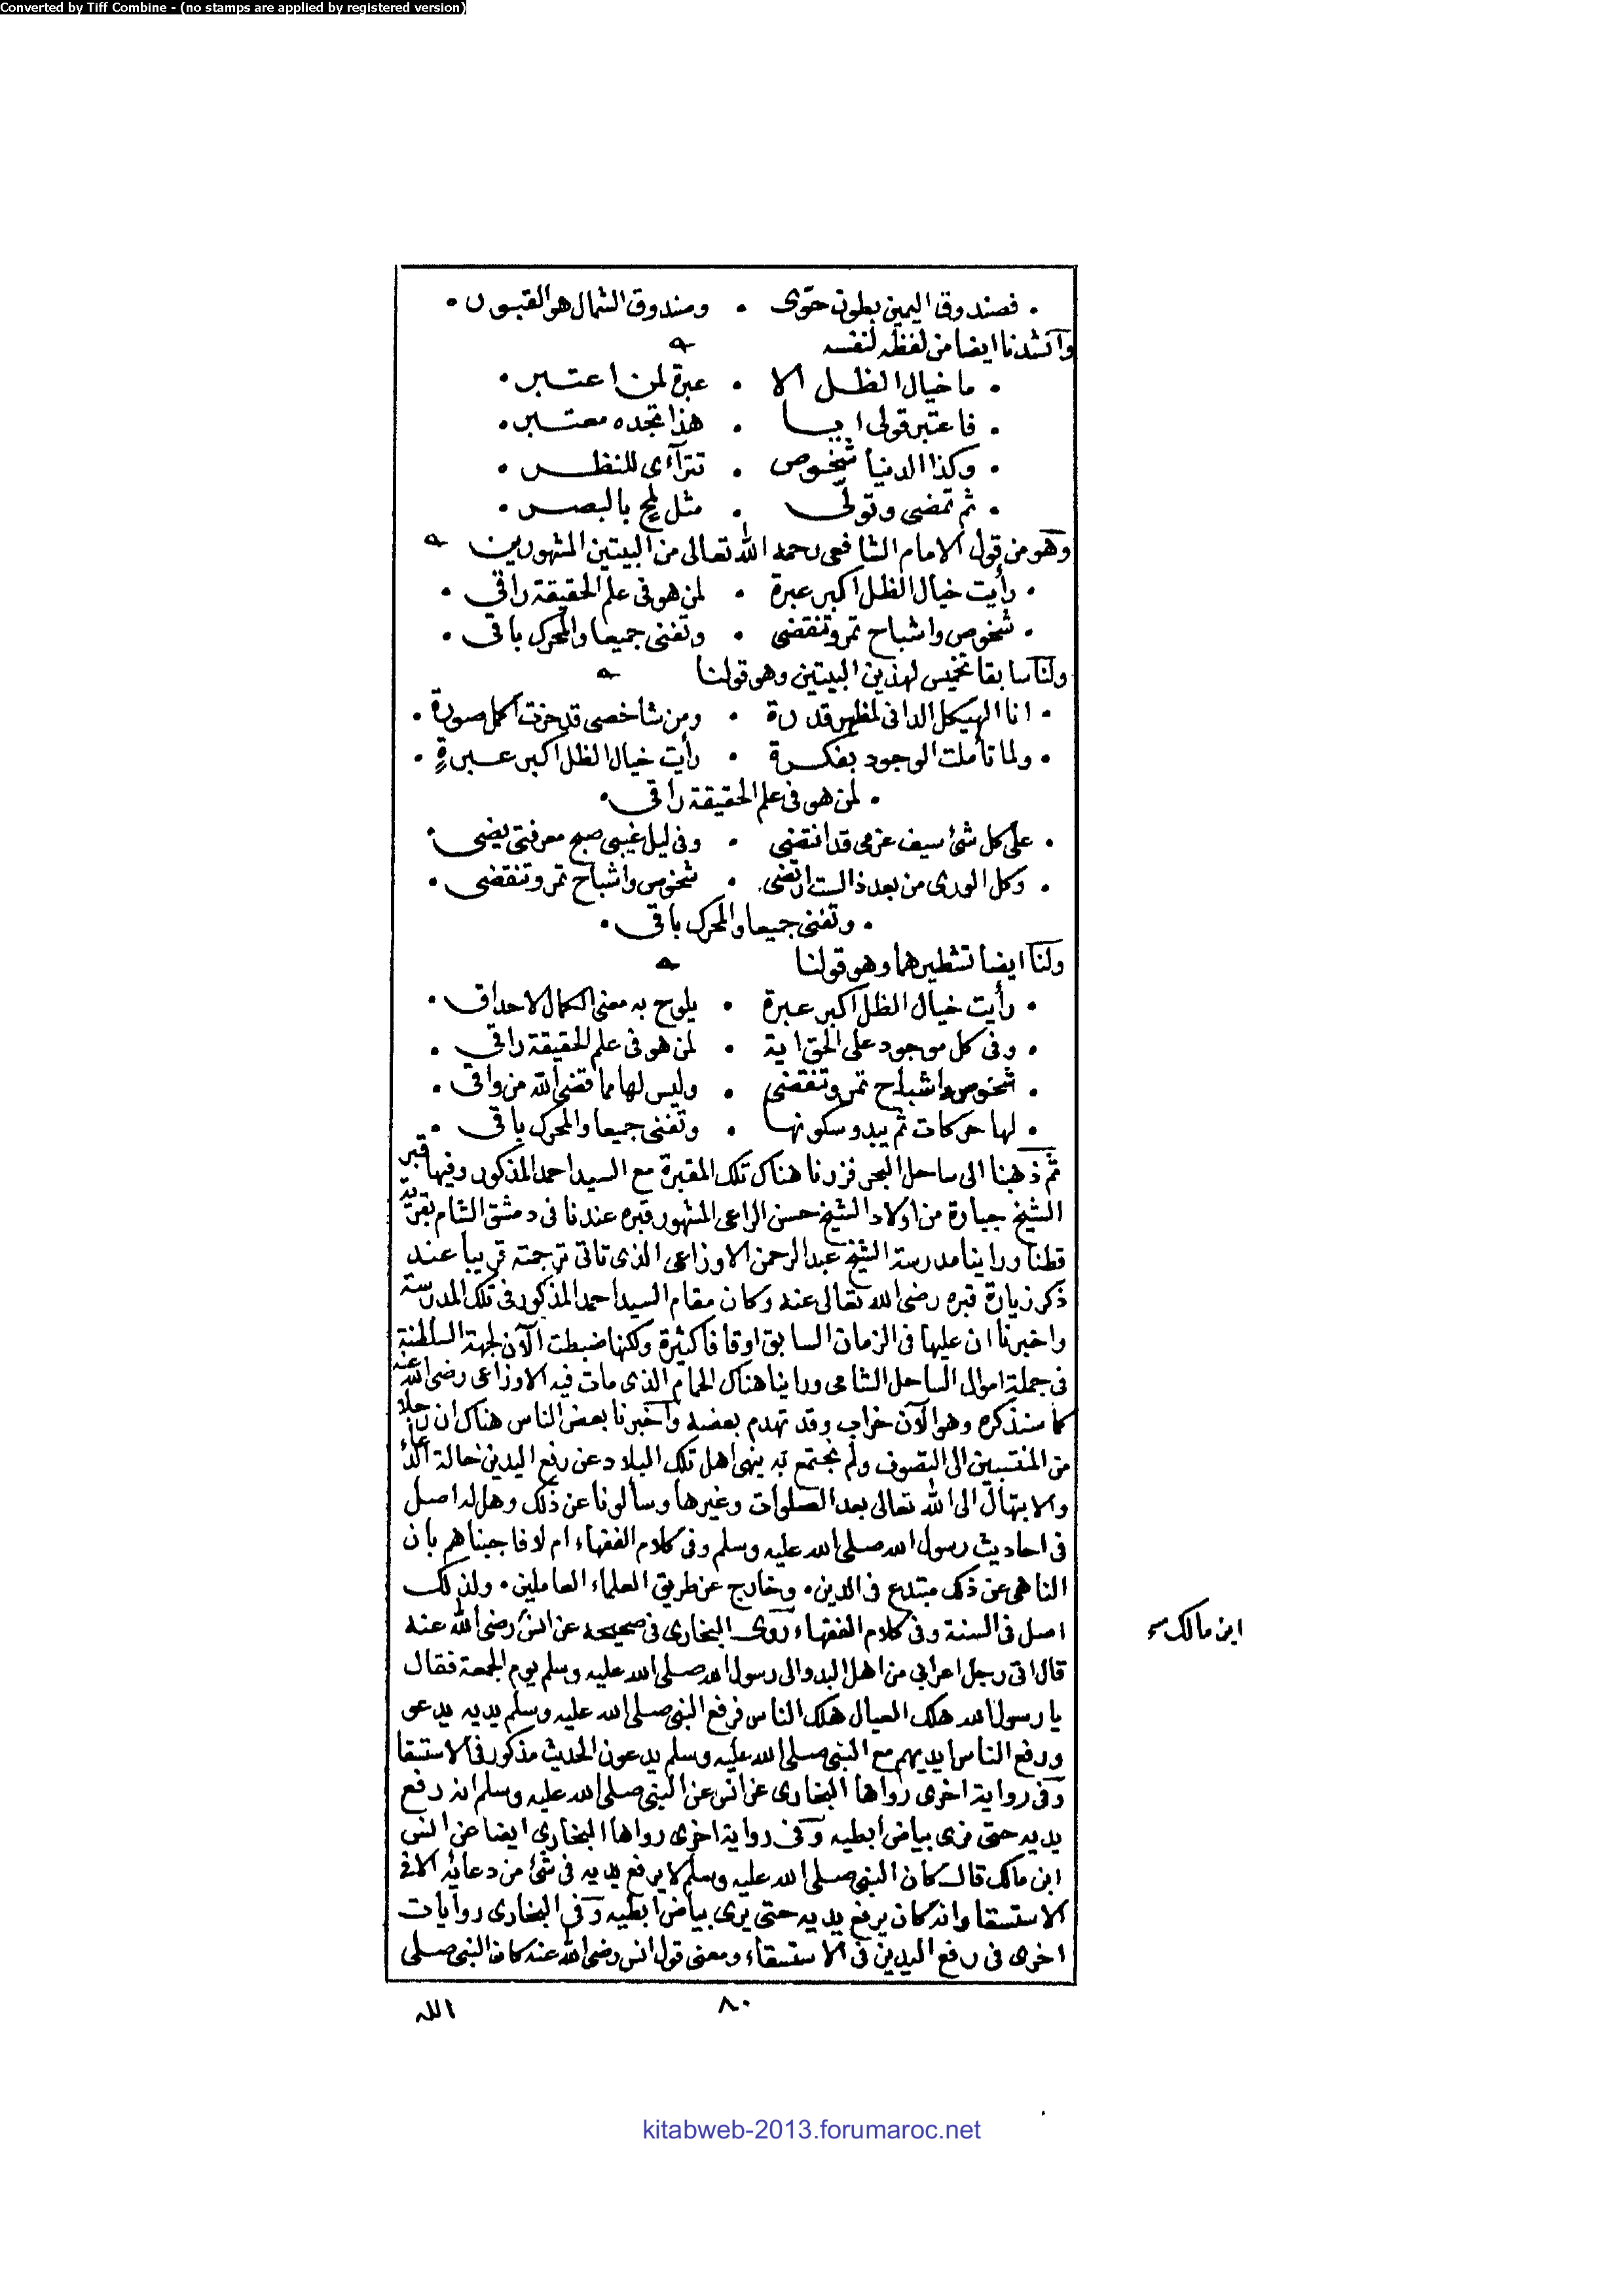 Converted by Tiff Combine - (no stamps are applied by registered version)
• فصندوق اليمين بطون حوّى • وصندوق الشمال هو القبور •
وأنشدنا ايضا من لفظه لنفسه
• ما خيال الظل الا • عبرة لمن اعتبر •
• فاعتبر قولى ايا • هذا تجده معتبر •
• وكذا الدنيا شخوص • تترآءى للنظر •
• ثم تمضى وتولّى • مثل لمح بالبصر •
وهو من قول الامام الشافعى رحمه الله تعالى من البيتين المشهورين
• رأيت خيال الظل اكبر عبرة • لمن هو فى علم الحقيقة راقى •
• شخوص واشباح تمر وتنقضى • وتفنى جميعا والمحرك باقى •
ولنا سابقا تخميس لهذين البيتين وهو قولنا
• انا الهيكل الدانى لمظهر قدرة • ومن شاخصى قد حزت اكمل صورة •
• ولما تأملت الوجود بفكرة • رأيت خيال الظل اكبر عبرةٍ •
• لمن هو فى علم الحقيقة راقى •
• على كل شئ سيف عزمى قد انتضى • وفى ليل غيبى صبح معرفتى يضى •
• وكل الورى من بعد ذا لست ارتضى • شخوص واشباح تمر وتنقضى •
• وتفنى جميعا والمحرك باقى •
ولنا ايضا تشطيرهما وهو قولنا
• رأيت خيال الظل اكبر عبرة • يلوح به معنى الكمال لاحداق •
• وفى كل موجود على الحق اية • لمن هو فى علم الحقيقة راقي •
• شخوص واشباح تمر وتنقضى • وليس لها مما قضى الله من واقى •
• لها حركات ثم يبدو سكونها • وتفنى جميعا والمحرك باقى •
ثم ذهبنا الى ساحل البحر فزرنا هناك تلك المقبرة مع السيد احمد المذكور وفيها قبر
الشيخ جبارة من اولاد الشيخ حسن الراعى المشهور قبره عندنا فى دمشق الشام بقرية
قطنا وراينا مدرسة الشيخ عبد الرحمن الاوزاعى الذى تاتى ترجمته قريبا عند
ذكر زيارة قبره رضى الله تعالى عنه وكان مقام السيد احمد المذكور فى تلك المدرسة
واخبرنا ان عليها فى الزمان السابق اوقافا كثيرة ولكنها ضبطت الآن لجهة السلطنة
فى جملة اموال الساحل الشامى وراينا هناك الحمام الذى مات فيه الاوزاعى رضى الله عنه
كما سنذكره وهو الآن خراب وقد تهدم بعضه وأخبرنا بعض الناس هناك ان رجلا
من المنتسبين الى التصوف ولم نجتمع به ينهى اهل تلك البلاد عن رفع اليدين حالة الدعاء
والابتهال الى الله تعالى بعد الصلوات وغيرها وسألونا عن ذلك وهل له اصل
فى احاديث رسول الله صلى الله عليه وسلم وفى كلام الفقهاء ام لا فاجبناهم بان
الناهى عن ذلك مبتدع فى الدين • وخارج عن طريق العلماء العاملين • ولذلك
اصل فى السنة وفى كلام الفقهاء روى البخارى فى صحيحه عن انس رضى الله عنه
ابن مالك
قال اتى رجل اعرابى من اهل البدو الى رسول الله صلى الله عليه وسلم يوم الجمعة فقال
يا رسول الله هلك العيال هلك الناس فرفع النبى صلى الله عليه وسلم يديه يدعو
ورفع الناس ايديهم مع النبى صلى الله عليه وسلم يدعون الحديث مذكور فى الاستسقا
وفى رواية اخرى رواها البخارى عن انس عن النبى صلى الله عليه وسلم انه رفع
يديه حتى نرى بياض ابطيه وفى رواية اخرى رواها البخارى ايضا عن انس
ابن مالك قال كان النبى صلى الله عليه وسلم لا يرفع يديه فى شئ من دعائه الا فى
الاستسقا وانه كان يرفع يديه حتى يرى بياض ابطيه وفى البخارى روايات
اخرى فى رفع اليدين فى الاستسقاء ومعنى قول انس رضى الله عنه كان النبى صلى
٨٠
الله
kitabweb-2013.forumaroc.net